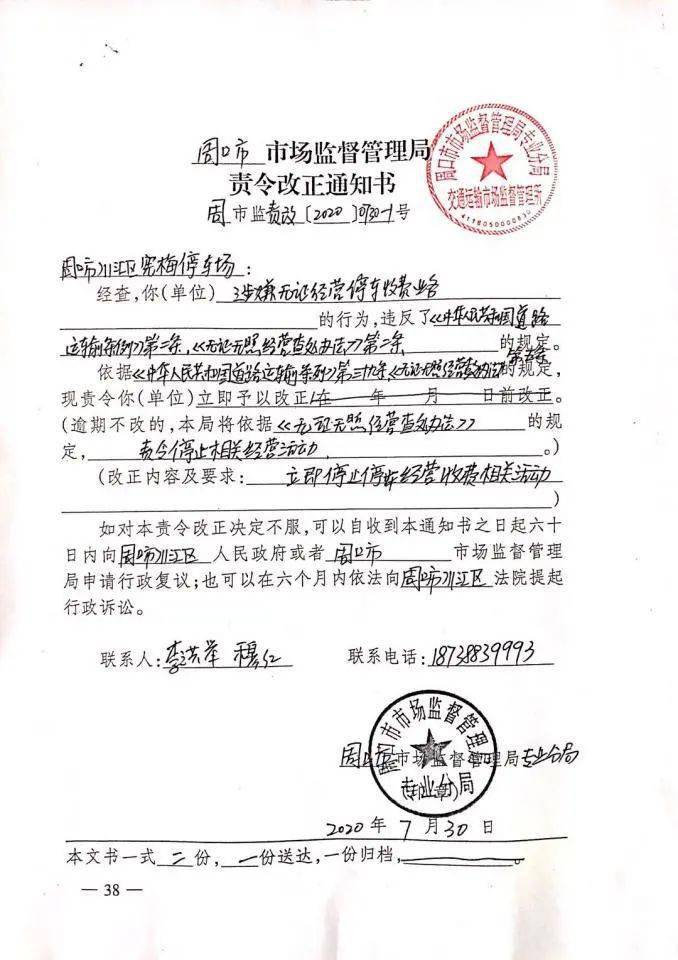 周口市 市场监督管理局
责令改正通知书
周市监责改〔2020〕0730-1号
周口市市场监督管理局专业分局
交通运输市场监督管理所
4116050000830
周口市川汇区宪梅停车场:
经查,你(单位) 涉嫌无证经营停车收费业务
的行为,违反了《中华人民共和国道路
运输条例》第二条,《无证无照经营查处办法》第二条 的规定。
依据《中华人民共和国道路运输条例》第三十九条,《无证无照经营查处办法》第五条的规定,
现责令你(单位)立即予以改正/在 年 月 日前改正。
(逾期不改的,本局将依据《无证无照经营查处办法》 的规
定, 责令停止相关经营活动 。)
(改正内容及要求: 立即停止停车经营收费相关活动
。)
如对本责令改正决定不服,可以自收到本通知书之日起六十
日内向周口市川汇区人民政府或者周口市 市场监督管理
局申请行政复议;也可以在六个月内依法向周口市川汇区法院提起
行政诉讼。
联系人:李洪举 穆红 联系电话:18738839993
周口市市场监督管理局专业分局
周口市市场监督管理局
专业分局
2020年7月30日
本文书一式二份,一份送达,一份归档,
— 38 —